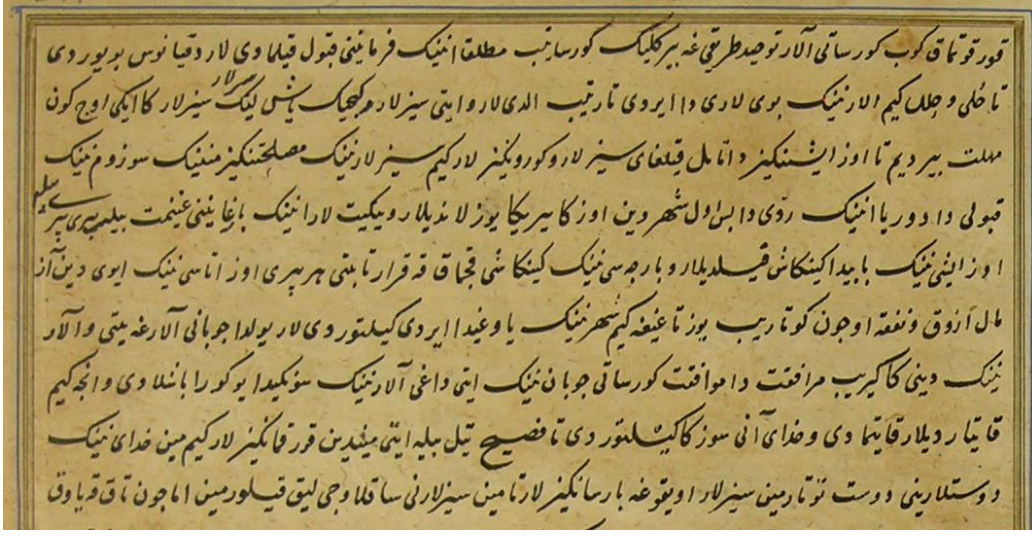 قورقوتماق کوب کورساتی آلار توحید طریقی غه بیرکلیک کورساتیب مطلقا انینک فرمانینی قبول قیلمادی لار دقیانوس بویوردی
تا حلی و حلل کیم الارنینک بوی لاری دا ایردی تارتیب الدی لار و ایتی سیزلار کیچیک یاش لیک سیزلار کا ایکی اوج کون
مهلت بیردیم تا اوز ایشینکیز دا تامل قیلغای سیزلار و کورونکیزلار کیم سیزلارنینک مصلحتنکیز مننینک سوزوم نینک
قبولی دا دور یا انینک ردی دا بس اول شهردین اوزکا بیر یکا یوزلاندیلار و ییکیت لار انینک بارغانینی غنیمت بیلیب بیری بیری بیله
اوز ایشی نینک بابیدا کینکاش قیلدیلار و بارجه سی نینک کینکاشی قجماق قه قرار تابتی هر بیری اوز اتاسی نینک ایوی دین آز
مال آزوق و نفقه اوجون کوتاریب یوز تاغیغه کیم شهرنینک یاوغیدا ایردی کیلتوردی لار یولدا جوبانی آلارغه یتی و آلار
نینک دینی کا کیریب مرافقت دا موافقت کورساتی جوبان نینک ایتی داغی آلارنینک سونکیدا یوکورا باشلادی و انجه کیم
قایتاردیلار قایتمادی و خدای آنی سوزکا کیلتوردی تا فصیح تیل بیله ایتی میندین قورقمانکیزلار کیم مین خدای نینک
دوستلارینی دوست توتارمین سیزلار اویقوغه بارسانکیزلار تا مین سیزلارنی ساقلاوجی لیق قیلورمین اما جون تاق قه یاووق